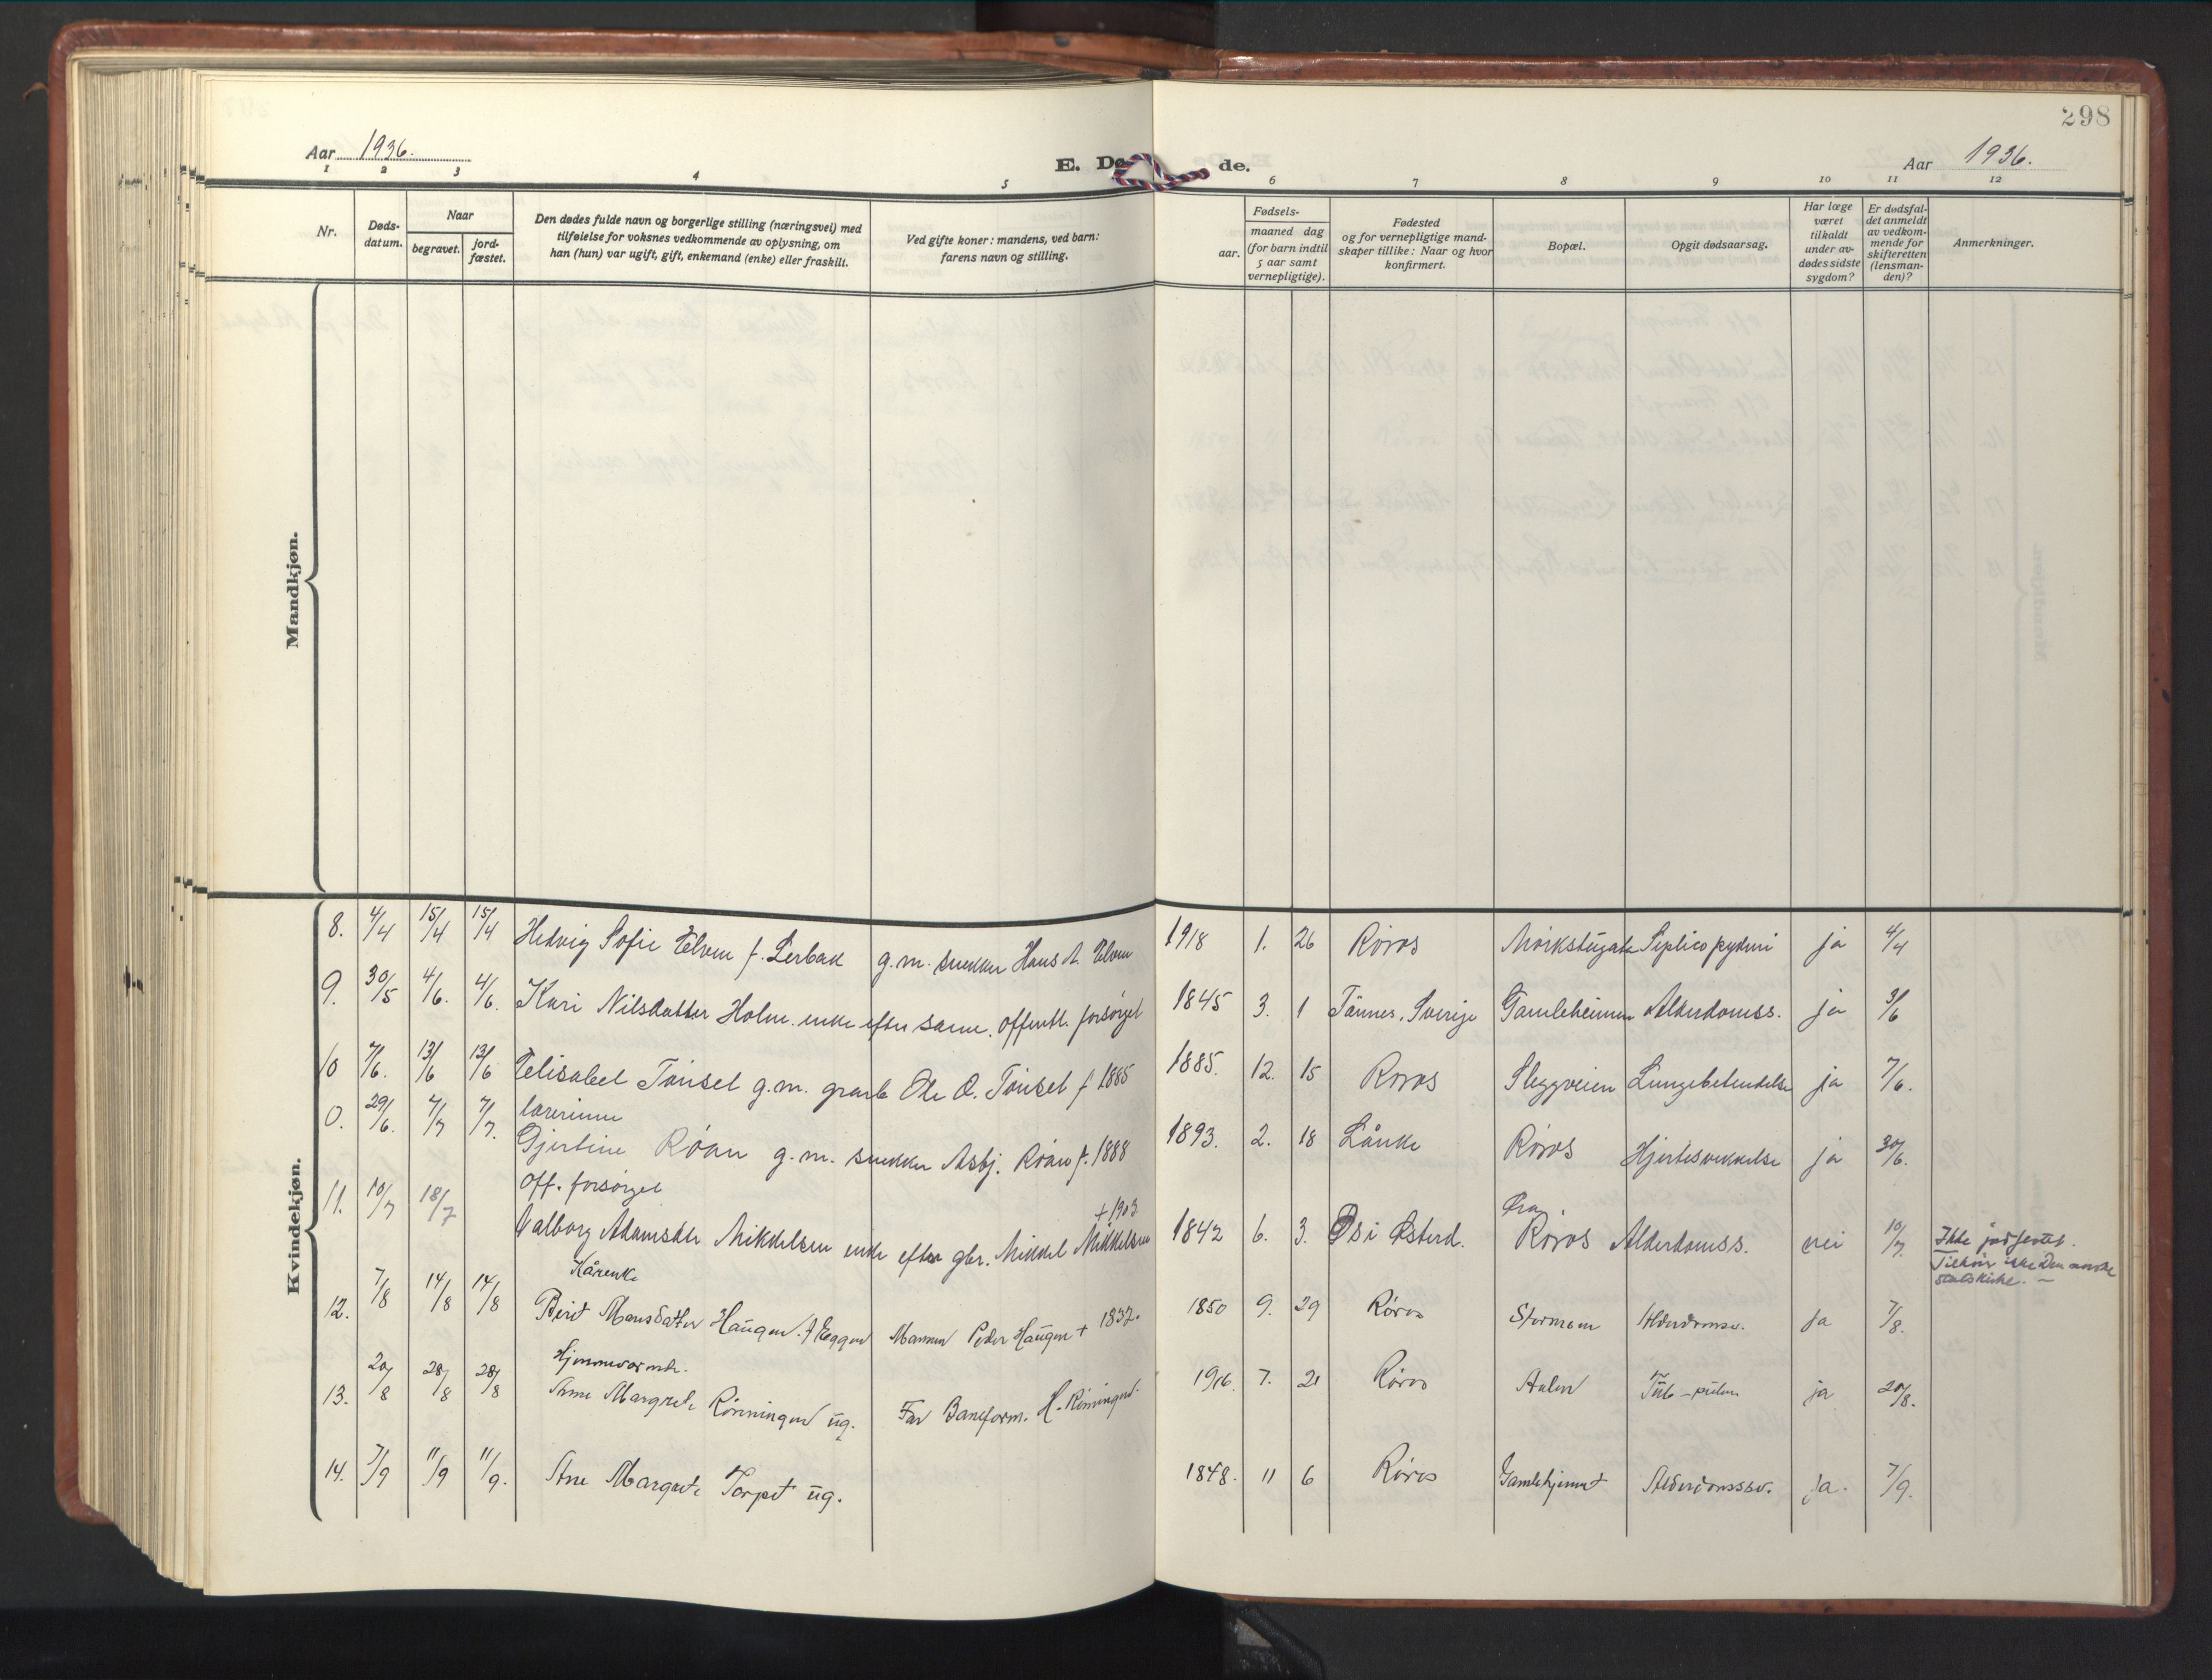 298
Aar 1936.
E. Dø de.
Aar 1936.
1 2 3 4 5 6 7 8 9 10 11 12
Nr.
Døds-
datum.
Naar
begravet.
jord-
fæstet.
Den dødes fulde navn og borgerlige stilling (næringsvei) med
tilføielse for voksnes vedkommende av oplysning, om
han (hun) var ugift, gift, enkemand (enke) eller fraskilt.
Ved gifte koner: mandens, ved barn:
farens navn og stilling.
Fødsels-
aar.
maaned dag
(for barn indtil
5 aar samt
vernepligtige).
Fødested
og for vernepligtige mand-
skaper tillike: Naar og hvor
konfirmert.
Bopæl.
Opgit dødsaarsag.
Har læge
været
tilkaldt
under av-
dødes sidste
sygdom?
Er dødsfal-
det anmeldt
av vedkom-
mende for
skifteretten
(lensman-
den)?
Anmerkninger.
Mandkjøn.
Kvindekjøn.
8. 4/4 15/4 15/4 Hedvig Sofie Elven f. Lerbak g.m. snekker Hans A. Elven 1918 1. 26 Røros Mørkstugata ja 4/4
9. 30/5 4/6. 4/6. Kari Nilsdatter Holm enke efter same. offentl. forsørget 1845 3. 1 Tännes, Sverige Gamleheimen Alderdomss. ja 3/6
10 7/6. 13/6 13/6 Elisabet Tønset g.m. gruarb Ole O. Tønset f 1885 1885. 12. 15 Røros Sleggveien Lungebetendelse ja 7/6.
lærerinne
0. 29/6. 4/7 7/7. Gjertine Røan g.m. snekker Asbj. Røan f. 1888 1893. 2. 18 Lånke Røros Hjertesvekkelse ja 30/6.
off. forsørget
+ 1903
11. 10/7 18/7 Valborg Adamsdtr Mikkelsen enke efter gbr. Mikkel Mikkelsen 1842 6. 3. Os i Østerd. Øra Røros Alderdomss. nei 10/7. Ikke jordfestet.
Tilhør ikke Den norske
statskirke. —
Kårenke
12. 7/8 14/8 14/8 Berit Mansdatter Haugen f Eggen Mannen Peder Haugen + 1832. 1850 9. 29 Røros Stormoen Alderdomsv. ja 7/8.
Hjemmeværende.
13. 20/8 28/8 28/8 Anne Margrete Rønningen ug. Far Baneform. H. Rønningen. 1916. 7. 21 Røros Aalen Tub-pulm ja 20/8.
14. 7/9 11/9 11/9. Ane Margrete Torpet ug. 1848. 11 6 Røros Gamlehjemmet Alderdomssv. ja. 7/9.